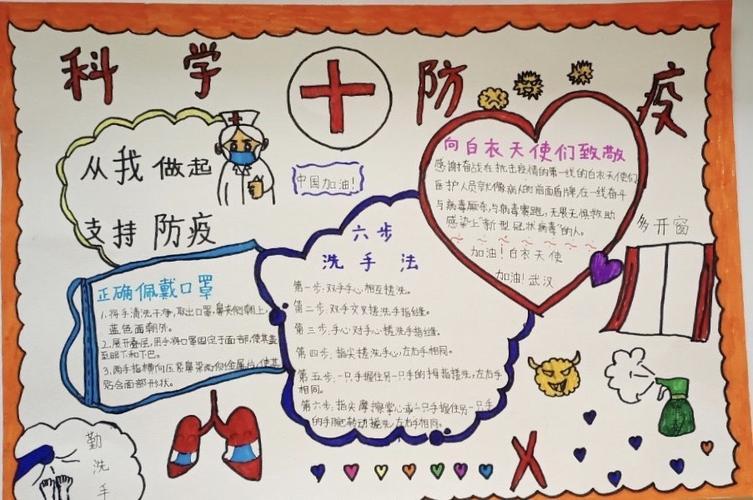 科学防疫
从我做起
支持防疫
中国加油!
向白衣天使们致敬
感谢奋战在抗击疫情的第一线的白衣天使们
医护人员就像病人的前面盾牌,在一线奋斗
与病毒厮杀,与病毒赛跑,无畏无惧救助
感染上"新型冠状病毒"的人。
加油!白衣天使
加油!武汉
多开窗
正确佩戴口罩
1.将手清洗干净,取出口罩,鼻夹侧朝上,
蓝色面朝外。
2.展开叠层,用手将口罩固定于面部,使其盖
至眼下和下巴。
3.两手指横向压紧鼻梁两侧金属片,使其
贴合面部形状。
六步
洗手法
第一步:双手手心相互搓洗。
第二步:双手交叉搓洗手指缝。
第三步:手心对手心搓洗手指缝。
第四步:指尖搓洗手心,左右手相同。
第五步:一只手握住另一只手的拇指搓洗,左右手
相同。
第六步:指尖摩擦掌心或一只手握住另一只手
的手腕转动搓洗,左右手相同。
勤洗手